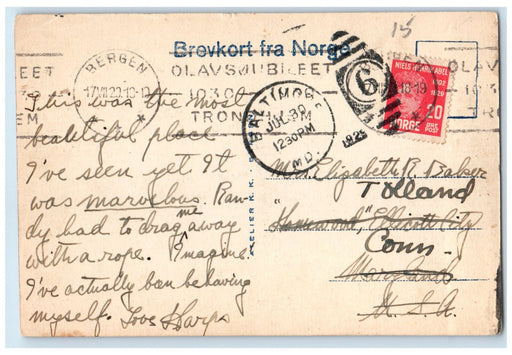 15
Brevkort fra Norge
BERGEN
17 VII 29.10-12
OLAVSJUBILEET
1030
TRON
BALTIMORE
JUL 30
12 30 PM
MD.
1929
6
NIELS H. ABEL
1802
1829
20
NORGE
ØRE
POST
OLAV
This was the most
beautiful place
I've seen yet It
was marvelous. Ran-
dy had to drag away
me
with a rope. Imagine
I've actually been behaving
myself. Love Harps
Elizabeth R. Baber
Tolland
"Ellicott City
Conn.
Maryland
U.S.A.
ATELIER K.K.